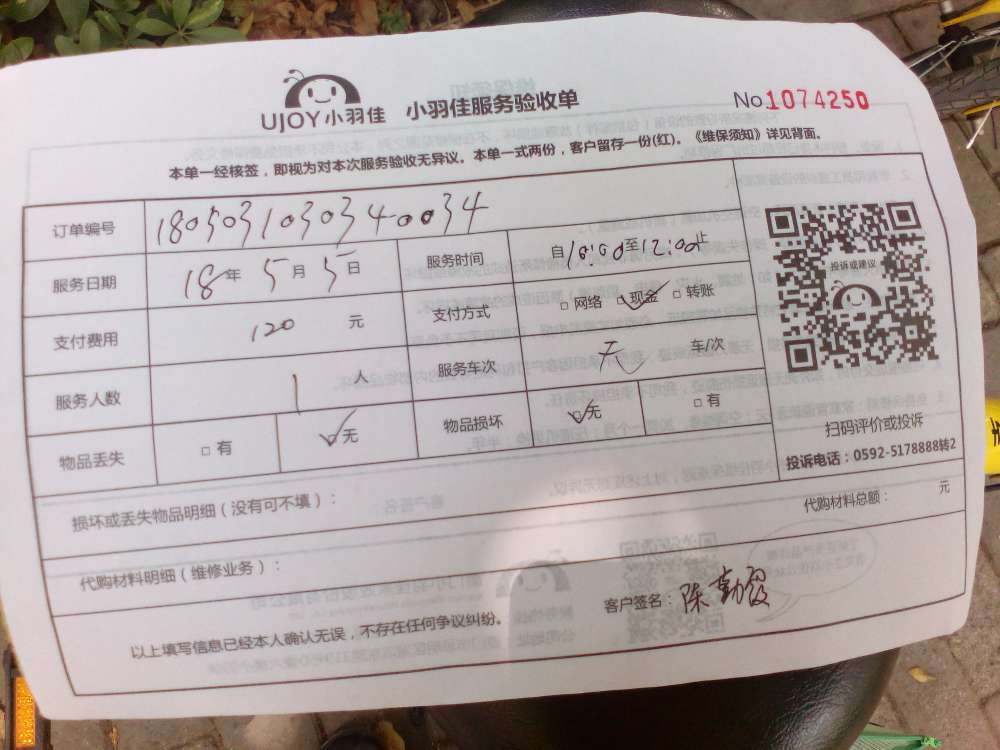 UJOY小羽佳 小羽佳服务验收单 No.1074250
本单一经核签，即视为对本次服务验收无异议。本单一式两份，客户留存一份(红)。《维保须知》详见背面。
订单编号 1805031030340034
服务日期 18年5月5日 服务时间 自10:00至12:00止
支付费用 120 元 支付方式 □网络 ☑现金 □转账
服务人数 1 人 服务车次 无 车/次
物品丢失 □有 ☑无 物品损坏 ☑无 □有
投诉或建议
扫码评价或投诉
投诉电话：0592-5178888转2
损坏或丢失物品明细（没有可不填）：
代购材料总额： 元
代购材料明细（维修业务）：
以上填写信息已经本人确认无误，不存在任何争议纠纷。 客户签名：陈勤霞